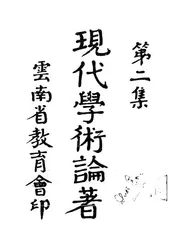 第二集
現代學術論著
雲南省教育會印